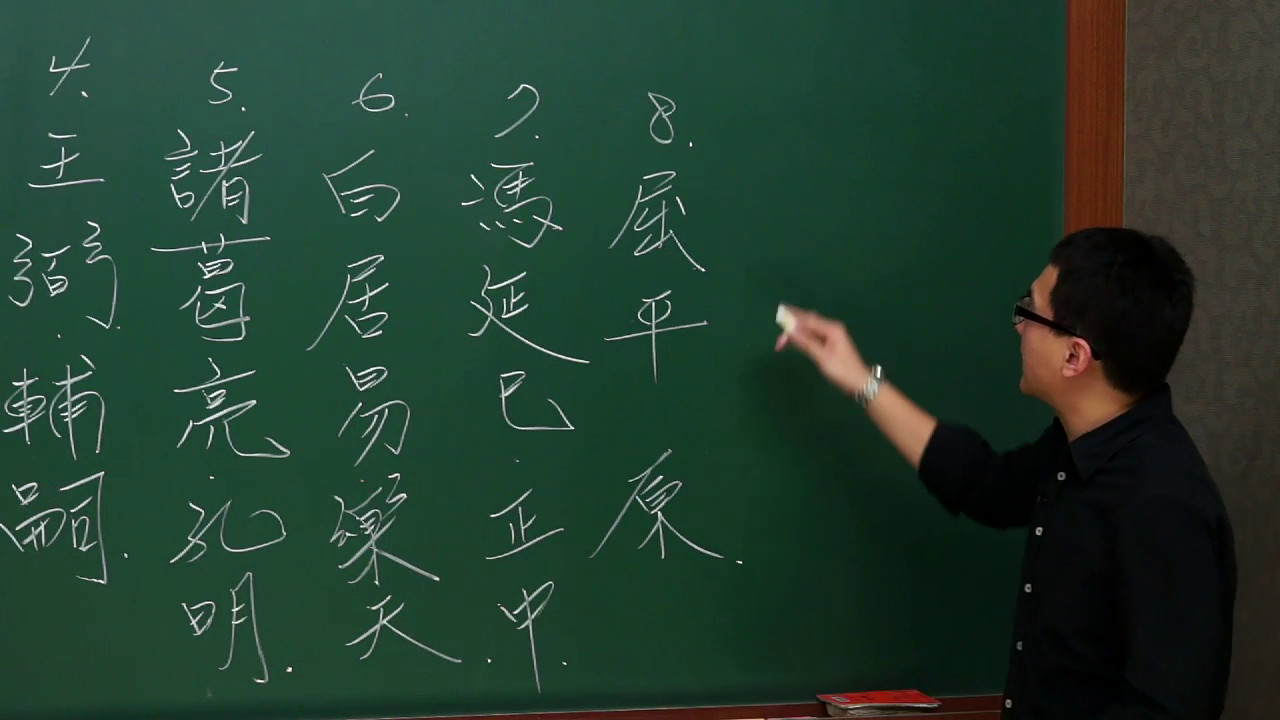 4. 王弼.輔嗣.
5. 諸葛亮.孔明.
6. 白居易樂天.
7. 馮延巳.正中.
8. 屈平 原.